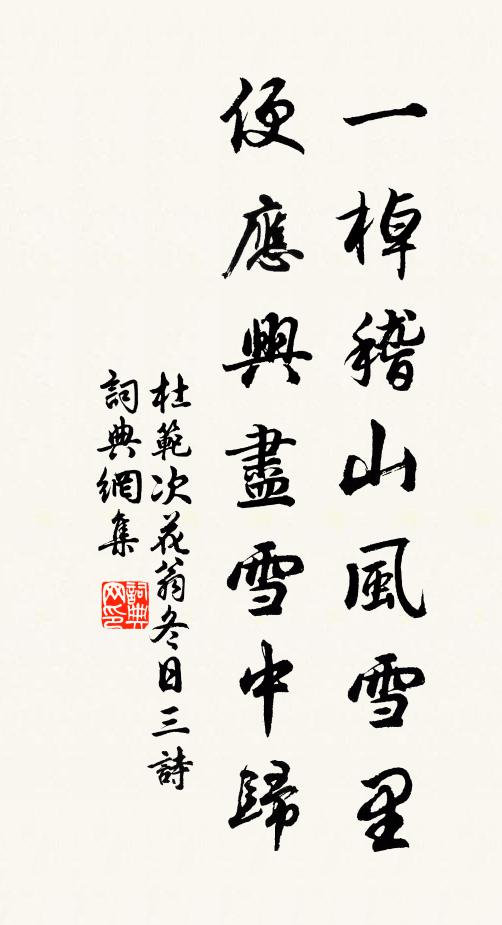 一棹稽山風雪里
便應興盡雪中歸
杜範次花翁冬日三詩
詞典網集
詞典网印